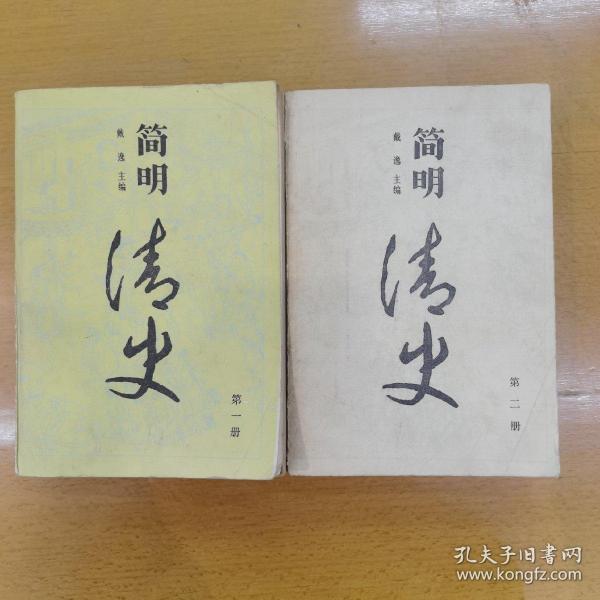 简明
清史
戴逸 主编
第一册
简明
清史
戴逸 主编
第二册
孔夫子旧书网
www.kongfz.com